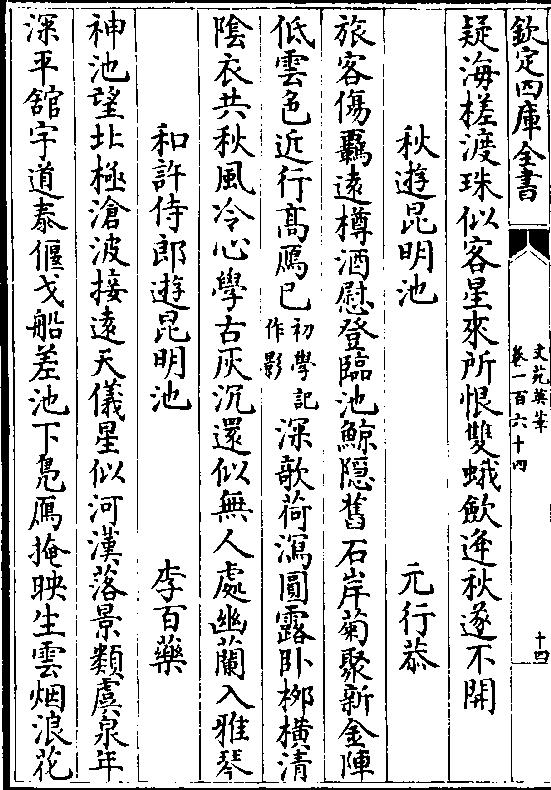 欽定四庫全書
文苑英華
卷一百六十四
十四
疑海槎渡珠似客星來所恨雙蛾歛逆秋遂不開
秋遊昆明池 元行恭
旅客傷羈遠樽酒慰登臨池鯨隱舊石岸菊聚新金陣
低雲色近行髙鴈巳初學記作影深欹荷瀉圓露卧栁横清
隂衣共秋風冷心學古灰沉還似無人處幽蘭入雅琴
和許侍郎遊昆明池 李百藥
神池望北極滄波接遠天儀星似河漢落景類虞泉年
深平舘宇道泰偃戈船差池下鳬鴈掩映生雲烟浪花